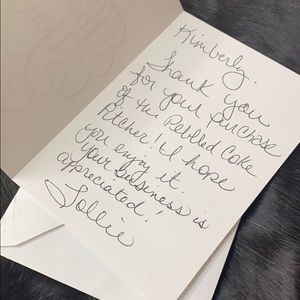 Kimberly!
Thank You
for your purchase
of the Pebbled Coke
Pitcher! I hope
you enjoy it.
Your business is
appreciated!
Lollie